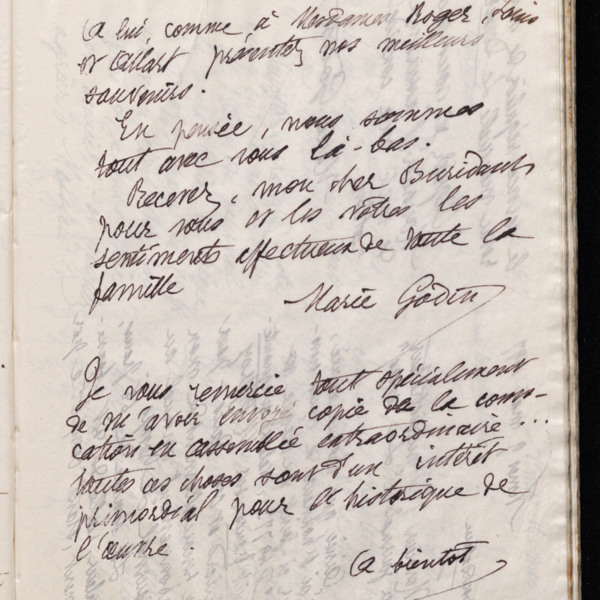 à lui, comme à Mesdames Roger, Louis
et Allart présentez nos meilleurs
souvenirs.
En pensée, nous sommes
tout avec vous là-bas.
Recevez, mon cher Buridant,
pour vous et les vôtres les
sentiments affectueux de toute la
famille
Marie Godin
Je vous remercie tout spécialement
de m'avoir envoyé copie de la convo-
cation en assemblée extraordinaire ...
toutes ces choses sont d'un intérêt
primordial pour l'historique de
l'œuvre.
à bientôt